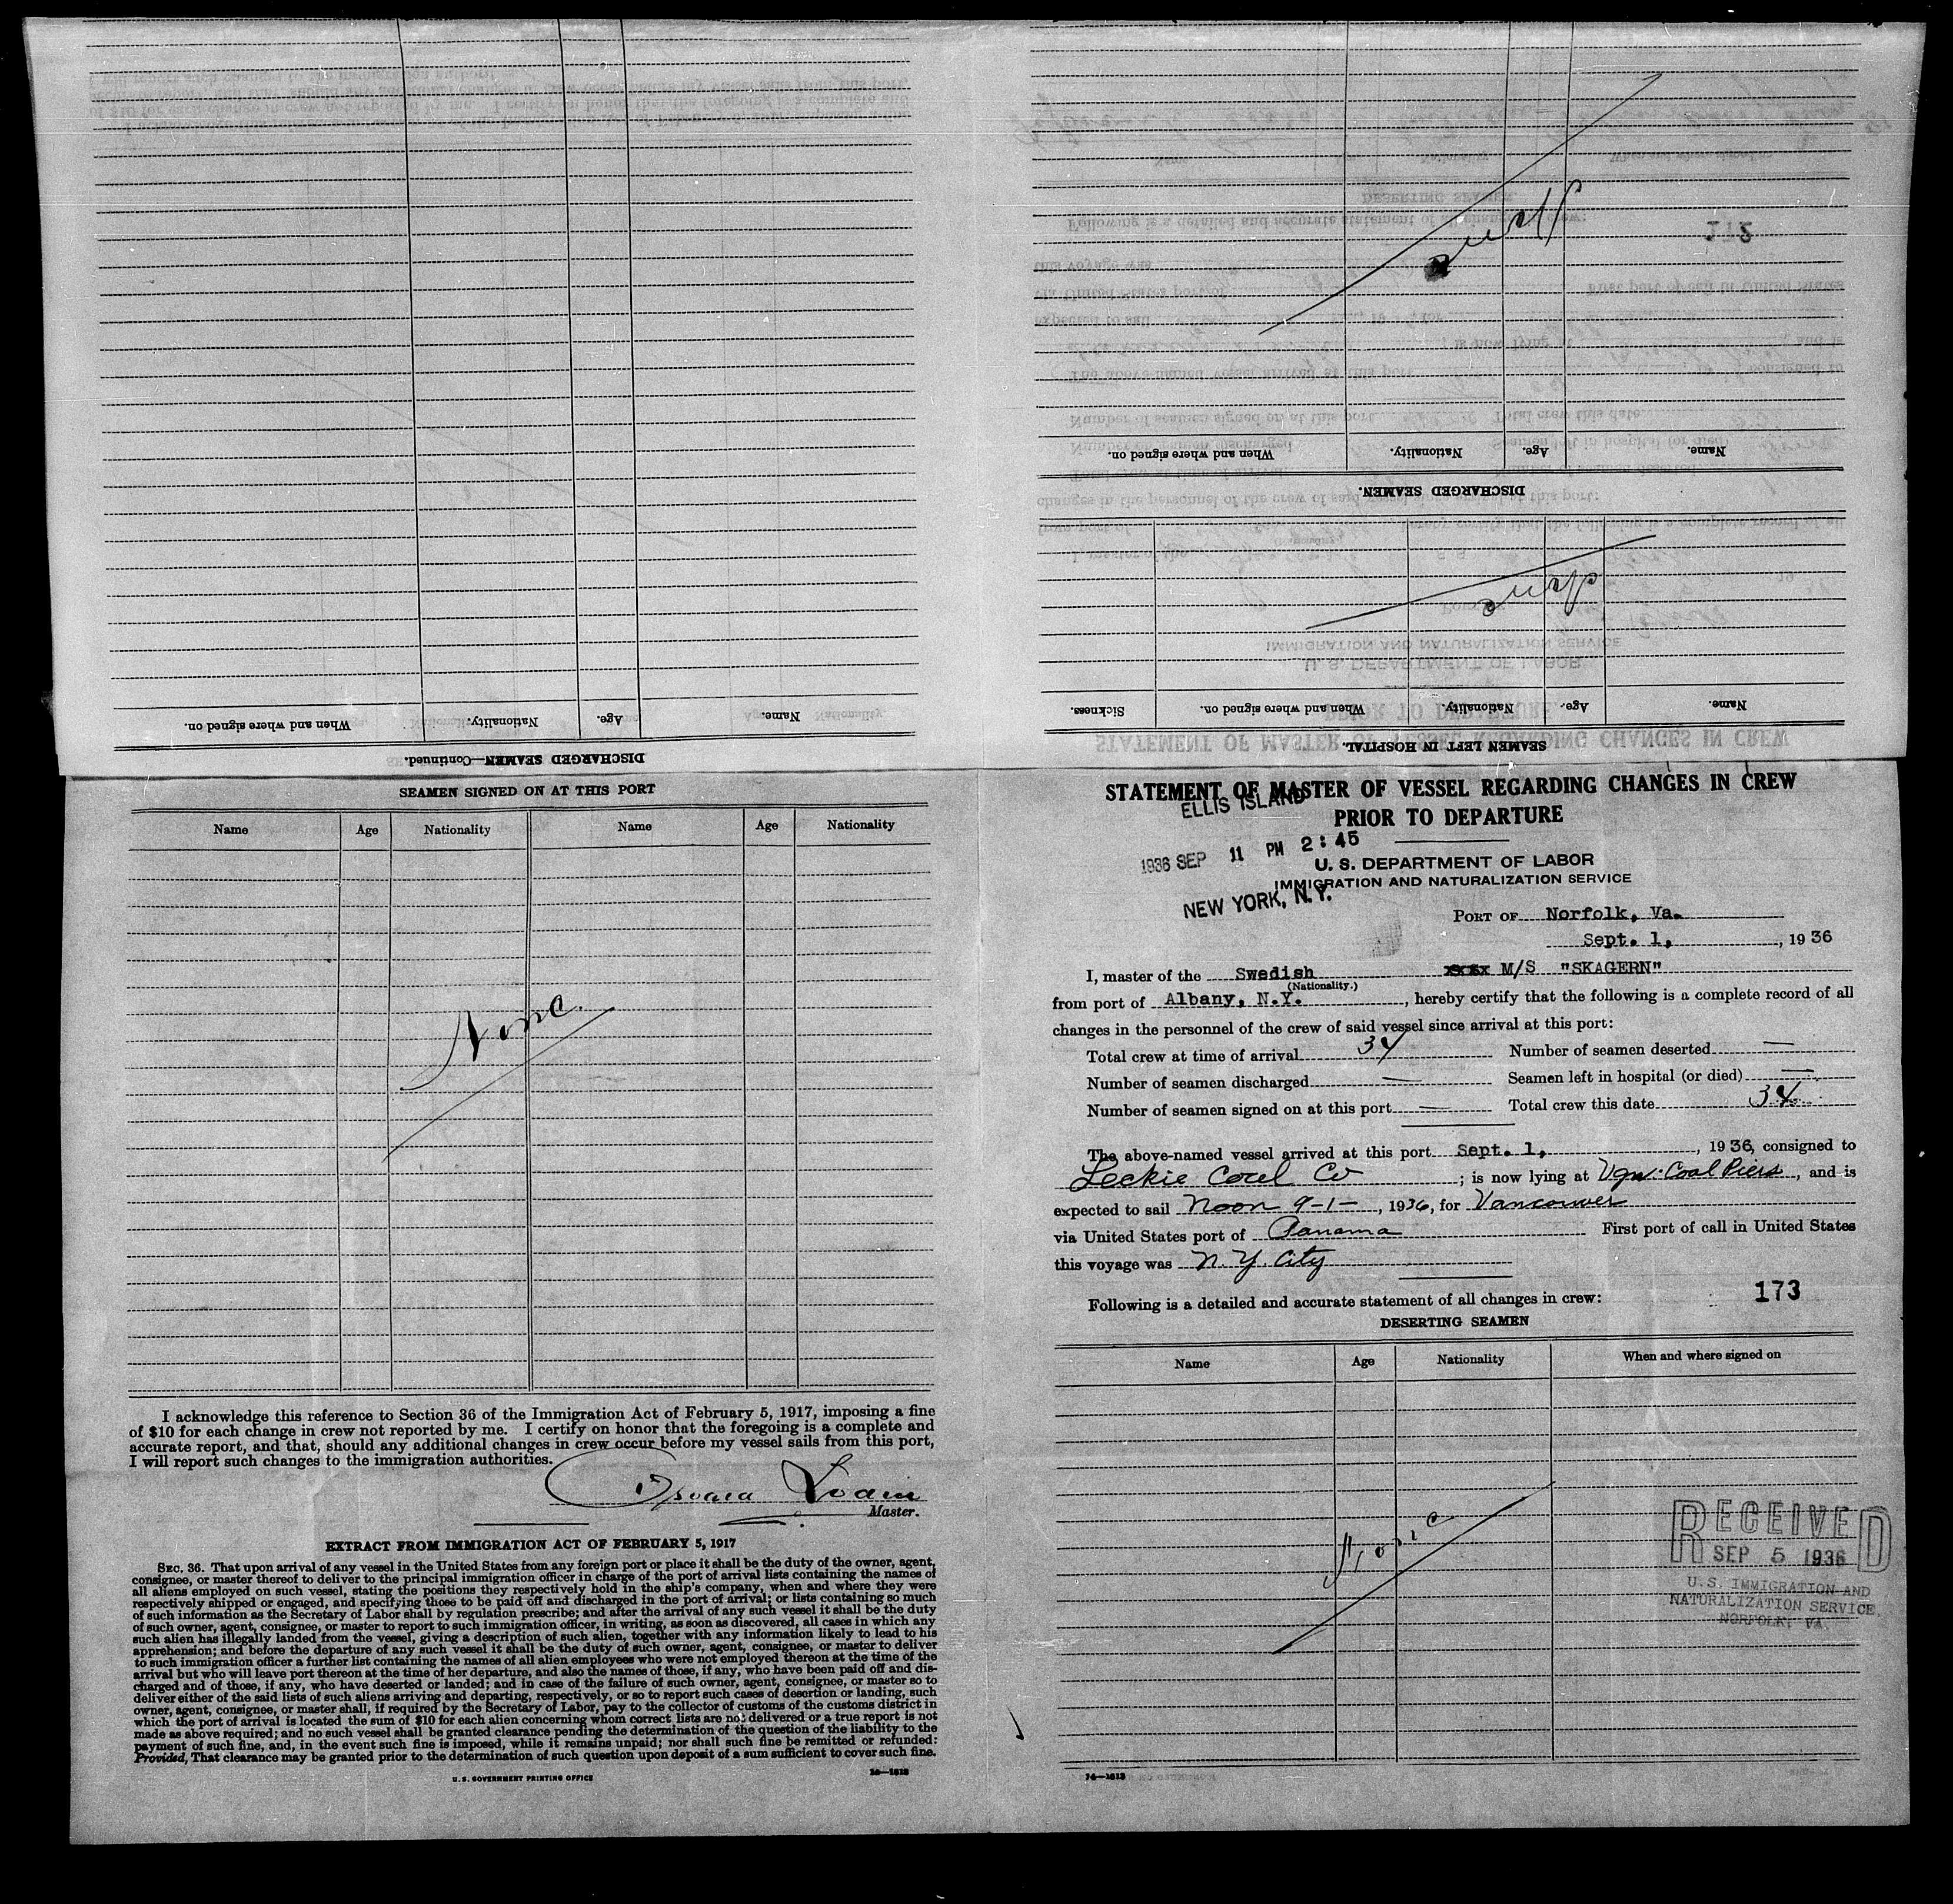 DISCHARGED SEAMEN—Continued.
Name. Age. Nationality. When and where signed on.
SEAMEN LEFT IN HOSPITAL.
Name. Age. Nationality. When and where signed on. Sickness.
None
DISCHARGED SEAMEN.
Name. Age. Nationality. When and where signed on.
None
SEAMEN SIGNED ON AT THIS PORT
Name Age Nationality Name Age Nationality
None.
I acknowledge this reference to Section 36 of the Immigration Act of February 5, 1917, imposing a fine
of $10 for each change in crew not reported by me. I certify on honor that the foregoing is a complete and
accurate report, and that, should any additional changes in crew occur before my vessel sails from this port,
I will report such changes to the immigration authorities.
Master.
EXTRACT FROM IMMIGRATION ACT OF FEBRUARY 5, 1917
SEC. 36. That upon arrival of any vessel in the United States from any foreign port or place it shall be the duty of the owner, agent,
consignee, or master thereof to deliver to the principal immigration officer in charge of the port of arrival lists containing the names of
all aliens employed on such vessel, stating the positions they respectively hold in the ship's company, when and where they were
respectively shipped or engaged, and specifying those to be paid off and discharged in the port of arrival; or lists containing so much
of such information as the Secretary of Labor shall by regulation prescribe; and after the arrival of any such vessel it shall be the duty
of such owner, agent, consignee, or master to report to such immigration officer, in writing, as soon as discovered, all cases in which any
such alien has illegally landed from the vessel, giving a description of such alien, together with any information likely to lead to his
apprehension; and before the departure of any such vessel it shall be the duty of such owner, agent, consignee, or master to deliver
to such immigration officer a further list containing the names of all alien employees who were not employed thereon at the time of the
arrival but who will leave port thereon at the time of her departure, and also the names of those, if any, who have been paid off and dis-
charged and of those, if any, who have deserted or landed; and in case of the failure of such owner, agent, consignee, or master so to
deliver either of the said lists of such aliens arriving and departing, respectively, or so to report such cases of desertion or landing, such
owner, agent, consignee, or master shall, if required by the Secretary of Labor, pay to the collector of customs of the customs district in
which the port of arrival is located the sum of $10 for each alien concerning whom correct lists are not delivered or a true report is not
made as above required; and no such vessel shall be granted clearance pending the determination of the question of the liability to the
payment of such fine, and, in the event such fine is imposed, while it remains unpaid; nor shall such fine be remitted or refunded:
Provided, That clearance may be granted prior to the determination of such question upon deposit of a sum sufficient to cover such fine.
U. S. GOVERNMENT PRINTING OFFICE 14—1613
STATEMENT OF MASTER OF VESSEL REGARDING CHANGES IN CREW
PRIOR TO DEPARTURE
ELLIS ISLAND
1936 SEP 11 PM 2:45
NEW YORK, N.Y.
U. S. DEPARTMENT OF LABOR
IMMIGRATION AND NATURALIZATION SERVICE
PORT OF Norfolk, Va.
Sept. 1, , 1936
I, master of the Swedish M/S "SKAGERN"
(Nationality.)
from port of Albany, N.Y. , hereby certify that the following is a complete record of all
changes in the personnel of the crew of said vessel since arrival at this port:
Total crew at time of arrival 34 Number of seamen deserted —
Number of seamen discharged — Seamen left in hospital (or died) —
Number of seamen signed on at this port — Total crew this date 34
The above-named vessel arrived at this port Sept. 1, , 1936, consigned to
Leckie Coal Co ; is now lying at Vgn. Coal Piers , and is
expected to sail Noon 9-1- , 1936, for Vancouver
via United States port of Panama First port of call in United States
this voyage was N.Y. City
173
Following is a detailed and accurate statement of all changes in crew:
DESERTING SEAMEN
Name Age Nationality When and where signed on
None
RECEIVED
SEP 5 1936
U.S. IMMIGRATION AND
NATURALIZATION SERVICE
NORFOLK, VA.
14—1613